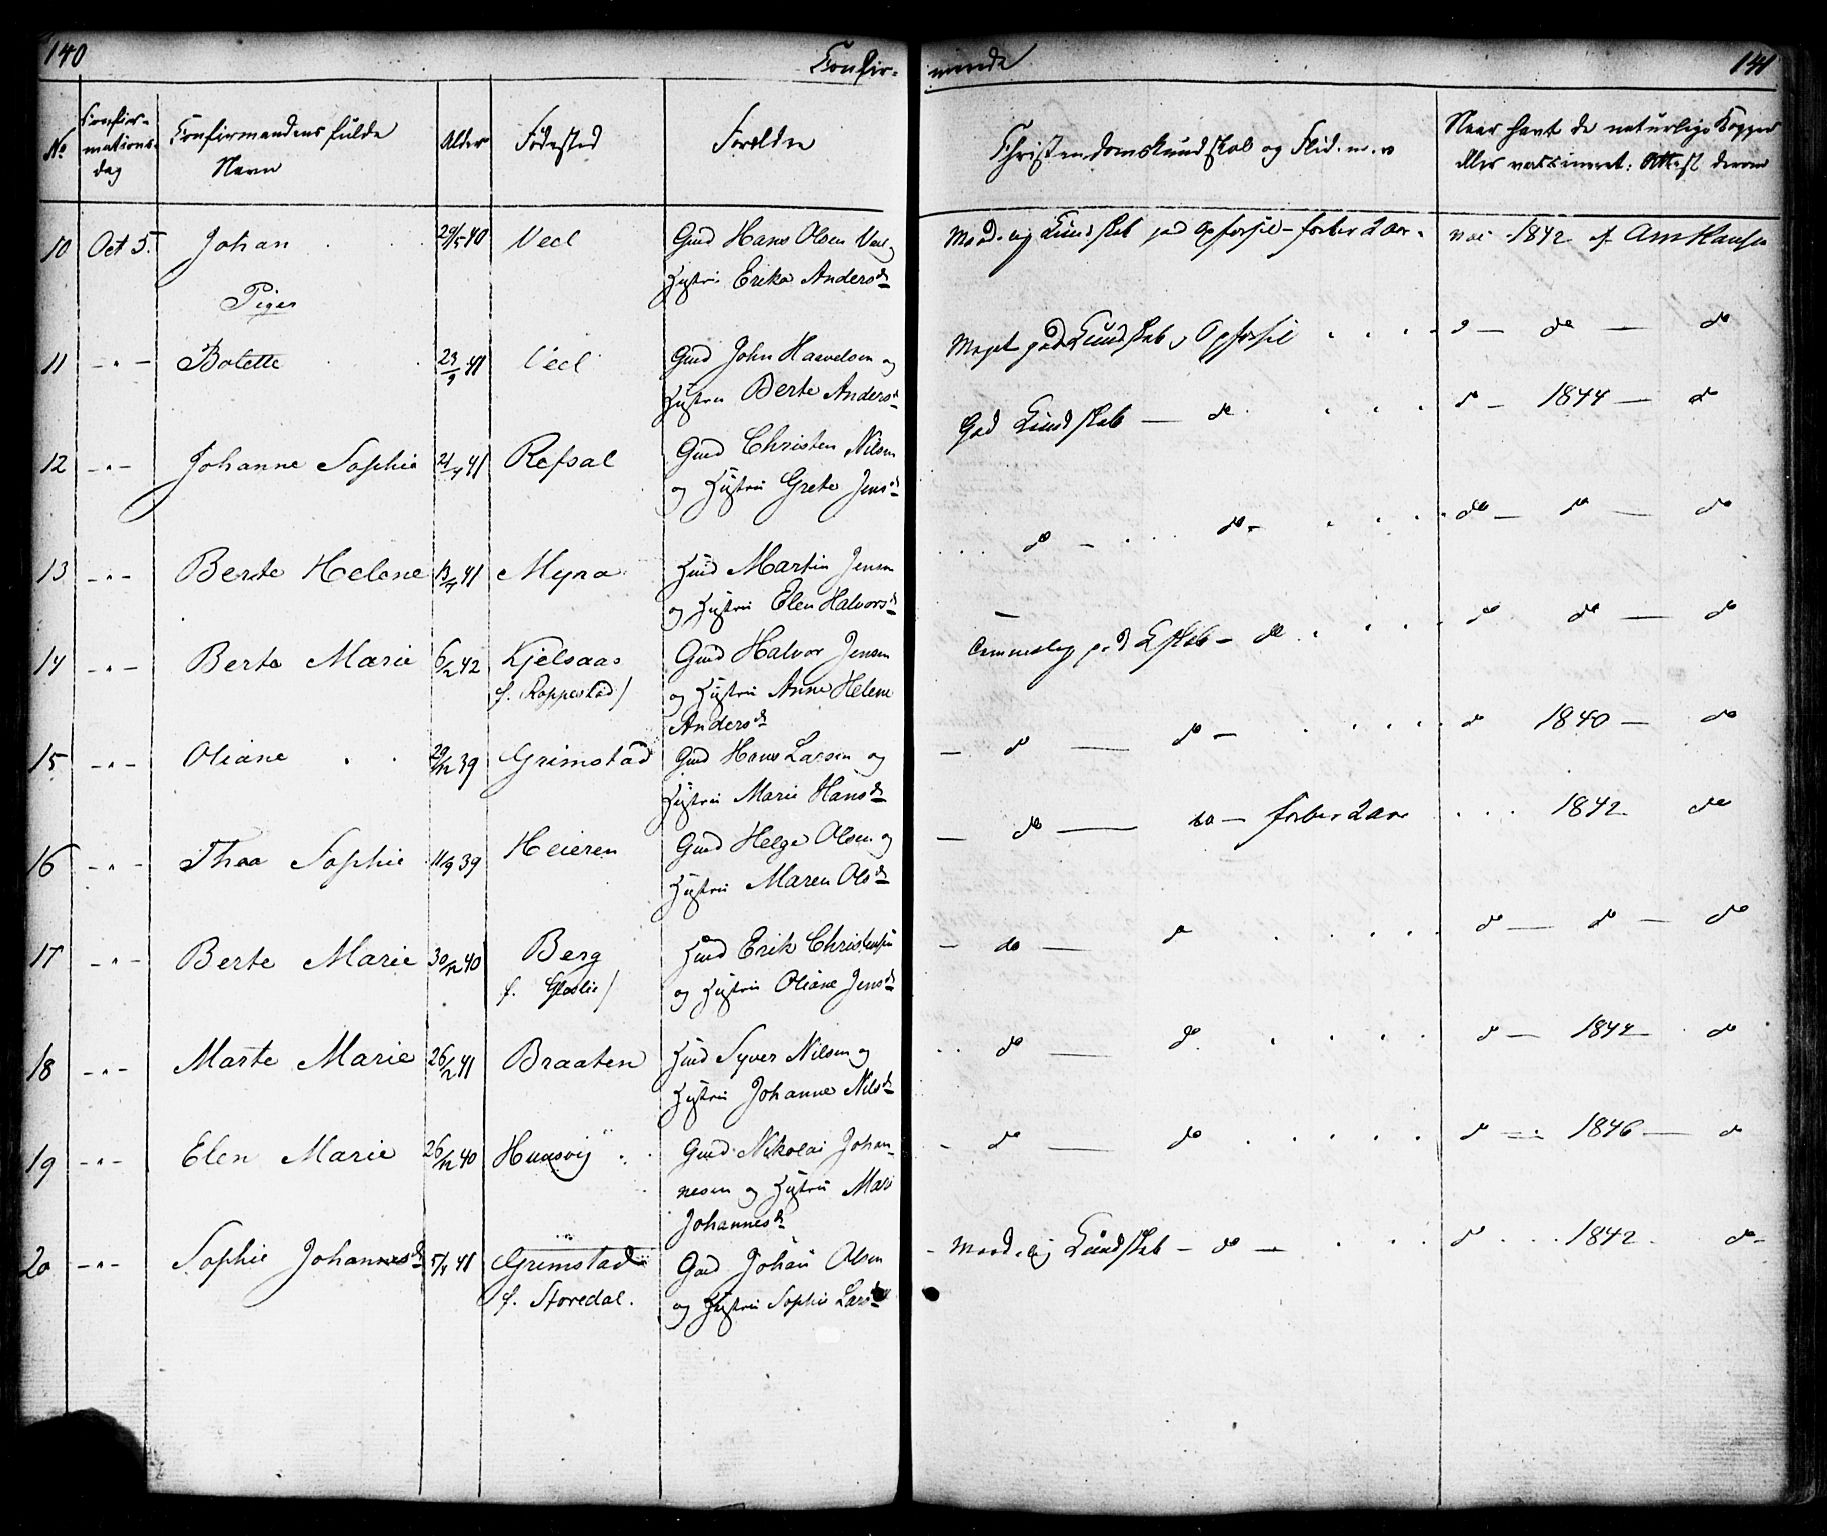 140
Confir-
No
Confir-
mations-
dag
Confirmandens fulde
Navn
Alder
Fødested
Forældre
10 Oct 5. Johan 29/5 40 Veel Gmd Hans Olsen Veel
Hustru Erika Andersd
Piger
11 - " - Bolette 23/9 41 Veel Gmd John Haavelsen og
Hustru Berte Andersd
12 - " - Johanne Sophie 21/4 41 Refsal Gmd Christen Nilsen
og Hustru Grete Jensd
13 - " - Berte Helene 13/4 41 Myra Hmd Martin Jensen
og Hustru Elen Halvorsd
14 - " - Berte Marie 6/2 42 Kjelsaas Gmd Halvor Jensen
f. Roppestad/ og Hustru Anne Helene
Andersd
15 - " - Oliane 29/12 39 Grimstad Gmd Hans Larsen og
Hustru Marie Hansd
16 - " - Thea Sophie 11/9 39 Heieren Gmd Helge Olsen og
Hustru Maren Olsd
17 - " - Berte Marie 30/12 40 Berg Hmd Erik Christensen
f. Glaslie/ og Hustru Oliane Jensd
18 - " - Marte Marie 26/2 41 Braaten Hmd Syver Nilsen og
Hustru Johanne Nilsd
19 - " - Elen Marie 26/12 40 Huusvig Gmd Nikolai Johan-
nesen og Hustru Mari
Johannesd
20 - " - Sophie Johannesd 5/4 41 Grimstad Gmd Johan Olsen
f. Storedal. og Hustru Sophie Larsd
mande
141
Christendomskundskab og Flid. m. v
Naar havt de naturlige Kopper
eller vaccineret: Attest derom
Maadelig Kundskab god Opførsel - forber 2 Aar. vac 1842 af Am Hansen
Meget god Kundskab, Opførsel d - do - do
God Kundskab - do d - 1844 - do
do - do - do - do - do
Temmelig god Kskab - do do do - do
- do - do - do 1840 - do
- do - do - forber 2 Aar 1842 do
- do - do do - do - do
do - do do - 1844 - do
- do - do do - 1846 - do
- Maadelig Kundskab - do - do 1842 do -